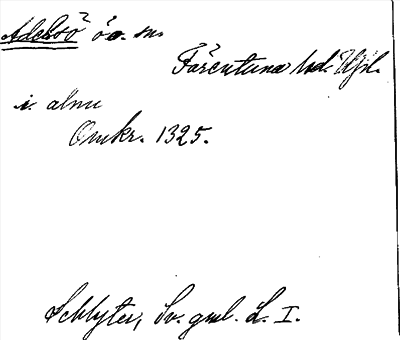 Adelsö ö o. sn.
Färentuna hd. Uppl.
i. alnu
Omkr. 1325.
Schlyter, Sv. gml. L. I.